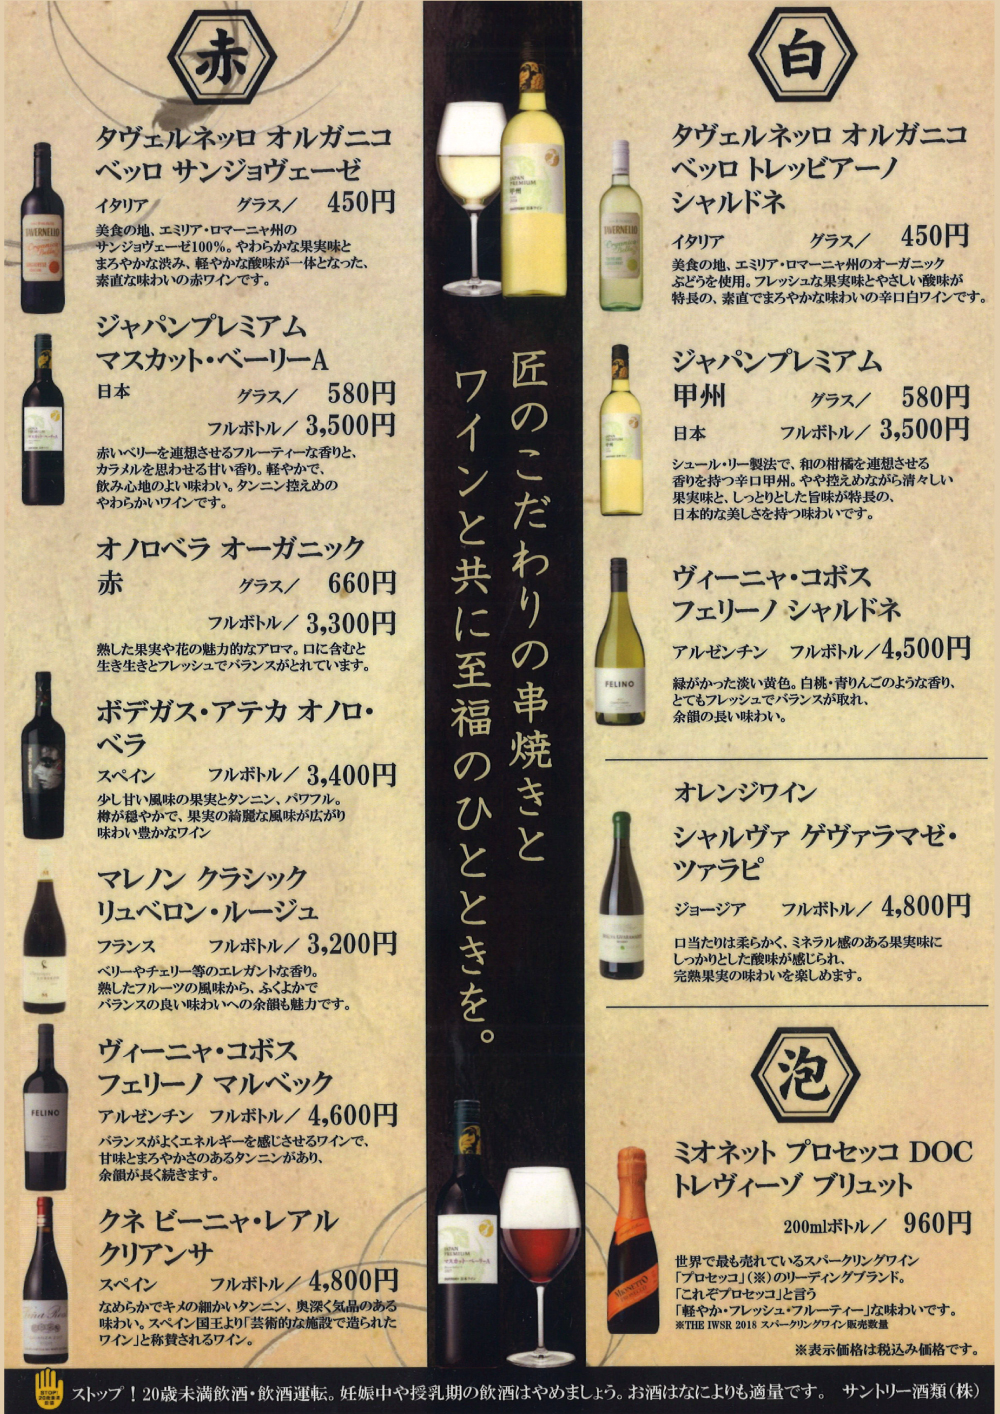 赤
タヴェルネッロ オルガニコ
ベッロ サンジョヴェーゼ
イタリア グラス／ 450円
美食の地、エミリア・ロマーニャ州の
サンジョヴェーゼ100%。やわらかな果実味と
まろやかな渋み、軽やかな酸味が一体となった、
素直な味わいの赤ワインです。
ジャパンプレミアム
マスカット・ベーリーA
日本 グラス／ 580円
フルボトル／ 3,500円
赤いベリーを連想させるフルーティーな香りと、
カラメルを思わせる甘い香り。軽やかで、
飲み心地のよい味わい。タンニン控えめの
やわらかいワインです。
オノロベラ オーガニック
赤 グラス／ 660円
フルボトル／ 3,300円
熟した果実や花の魅力的なアロマ。口に含むと
生き生きとフレッシュでバランスがとれています。
ボデガス・アテカ オノロ・
ベラ
スペイン フルボトル／ 3,400円
少し甘い風味の果実とタンニン、パワフル。
樽が穏やかで、果実の綺麗な風味が広がり
味わい豊かなワイン
マレノン クラシック
リュベロン・ルージュ
フランス フルボトル／ 3,200円
ベリーやチェリー等のエレガントな香り。
熟したフルーツの風味から、ふくよかで
バランスの良い味わいへの余韻も魅力です。
ヴィーニャ・コボス
フェリーノ マルベック
アルゼンチン フルボトル／ 4,600円
バランスがよくエネルギーを感じさせるワインで、
甘味とまろやかさのあるタンニンがあり、
余韻が長く続きます。
クネ ビーニャ・レアル
クリアンサ
スペイン フルボトル／ 4,800円
なめらかでキメの細かいタンニン、奥深く気品のある
味わい。スペイン国王より「芸術的な施設で造られた
ワイン」と称賛されるワイン。
匠のこだわりの串焼きと
ワインと共に至福のひとときを。
白
タヴェルネッロ オルガニコ
ベッロ トレッビアーノ
シャルドネ
イタリア グラス／ 450円
美食の地、エミリア・ロマーニャ州のオーガニック
ぶどうを使用。フレッシュな果実味とやさしい酸味が
特長の、素直でまろやかな味わいの辛口白ワインです。
ジャパンプレミアム
甲州 グラス／ 580円
日本 フルボトル／ 3,500円
シュール・リー製法で、和の柑橘を連想させる
香りを持つ辛口甲州。やや控えめながら清々しい
果実味と、しっとりとした旨味が特長の、
日本的な美しさを持つ味わいです。
ヴィーニャ・コボス
フェリーノ シャルドネ
アルゼンチン フルボトル／4,500円
緑がかった淡い黄色。白桃・青りんごのような香り、
とてもフレッシュでバランスが取れ、
余韻の長い味わい。
オレンジワイン
シャルヴァ ゲヴァラマゼ・
ツァラピ
ジョージア フルボトル／ 4,800円
口当たりは柔らかく、ミネラル感のある果実味に
しっかりとした酸味が感じられ、
完熟果実の味わいを楽しめます。
泡
ミオネット プロセッコ DOC
トレヴィーゾ ブリュット
200mlボトル／ 960円
世界で最も売れているスパークリングワイン
「プロセッコ」（※）のリーディングブランド。
「これぞプロセッコ」と言う
「軽やか・フレッシュ・フルーティー」な味わいです。
※THE IWSR 2018 スパークリングワイン販売数量
※表示価格は税込み価格です。
TAVERNELLO
TAVERNELLO
FELINO
FELINO
MIONETTO
JAPAN
PREMIUM
甲州
JAPAN
PREMIUM
マスカット・ベーリーA
STOP!
ストップ！20歳未満飲酒・飲酒運転。妊娠中や授乳期の飲酒はやめましょう。お酒はなによりも適量です。 サントリー酒類（株）